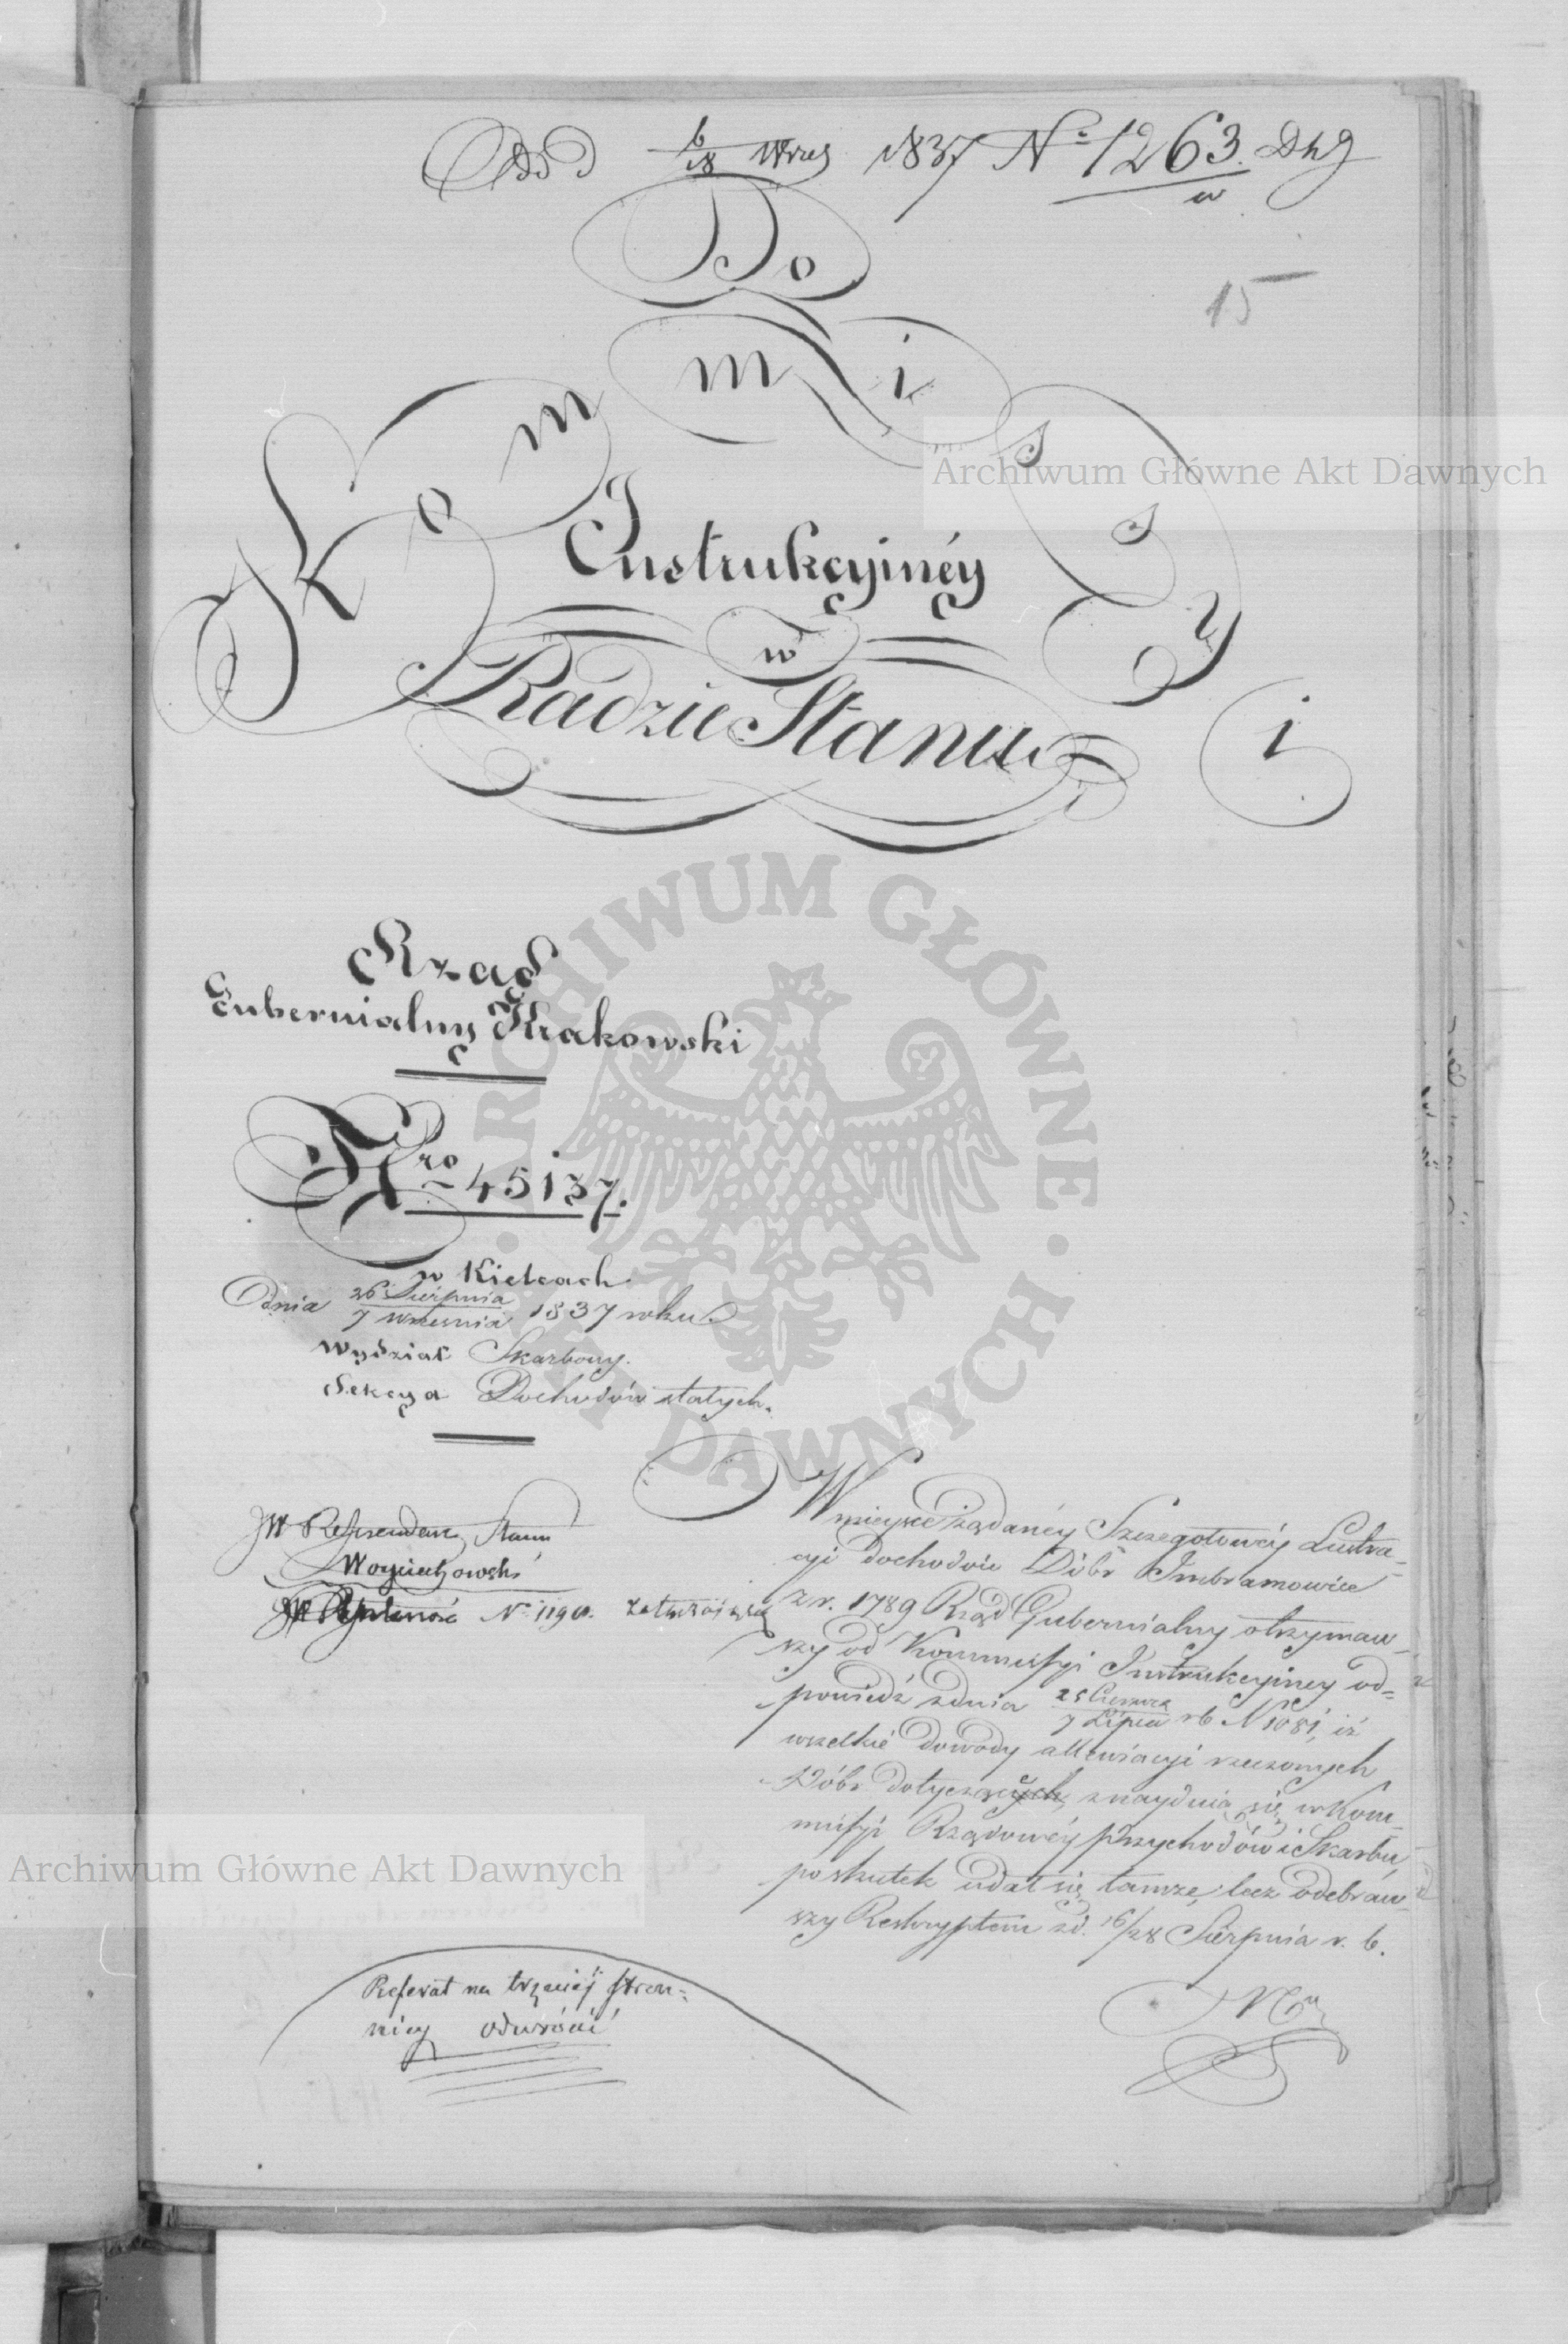 6/18 Wrześ 1837 Nº 1263.
15
Do
Kommissyi
Instrukcyinéy
w
Radzie Stanu
Rząd
Gubernialny Krakowski
Nro 45137.
w Kielcach
Dnia 26 Sierpnia / 7 Września 1837 roku
Wydział Skarbowy.
Sekcya Dochodów stałych.
JW Referendarz Stanu
Woyciechowski
Nº 1190.
W mieysce żądanéy Szczegółowéy Lustra=
cyi dochodów Dóbr Imbramowice
z r. 1789 Rząd Gubernialny otrzymaw=
szy od Kommissyi Instrukcyiney od=
powiedź z dnia 25 Czerwca / 7 Lipca r b N 1081, iż
wszelkie dowody allewiacyi rzeczonych
Dóbr dotyczących, znayduią się w Kom=
missyi Rządowéy Przychodów i Skarbu,
poskutek udał się tamże, lecz odebraw=
szy Reskryptem z d. 16/28 Sierpnia r. b.
Referat na trzeciéj stron=
nicy odwrócić
Archiwum Główne Akt Dawnych
Archiwum Główne Akt Dawnych
ARCHIWUM GŁÓWNE · AKT DAWNYCH ·